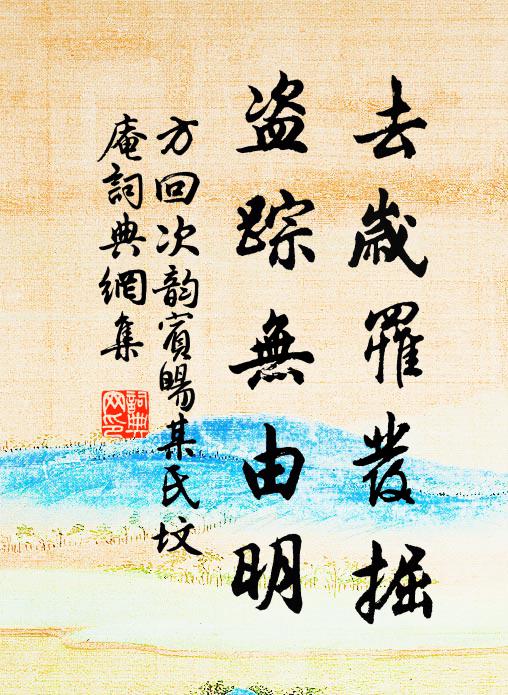 去歲罹發掘
盜踪無由明
方回次韵賓暘某氏坟
庵詞典網集
詞典
网印